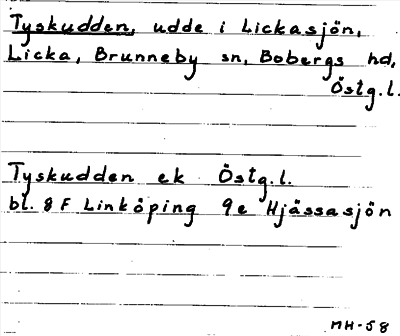 Tyskudden, udde i Lickasjön,
Licka, Brunneby sn, Bobergs hd,
Östg.l.
Tyskudden ek Östg.l.
bl. 8 F Linköping 9e Hjässasjön
MH-58